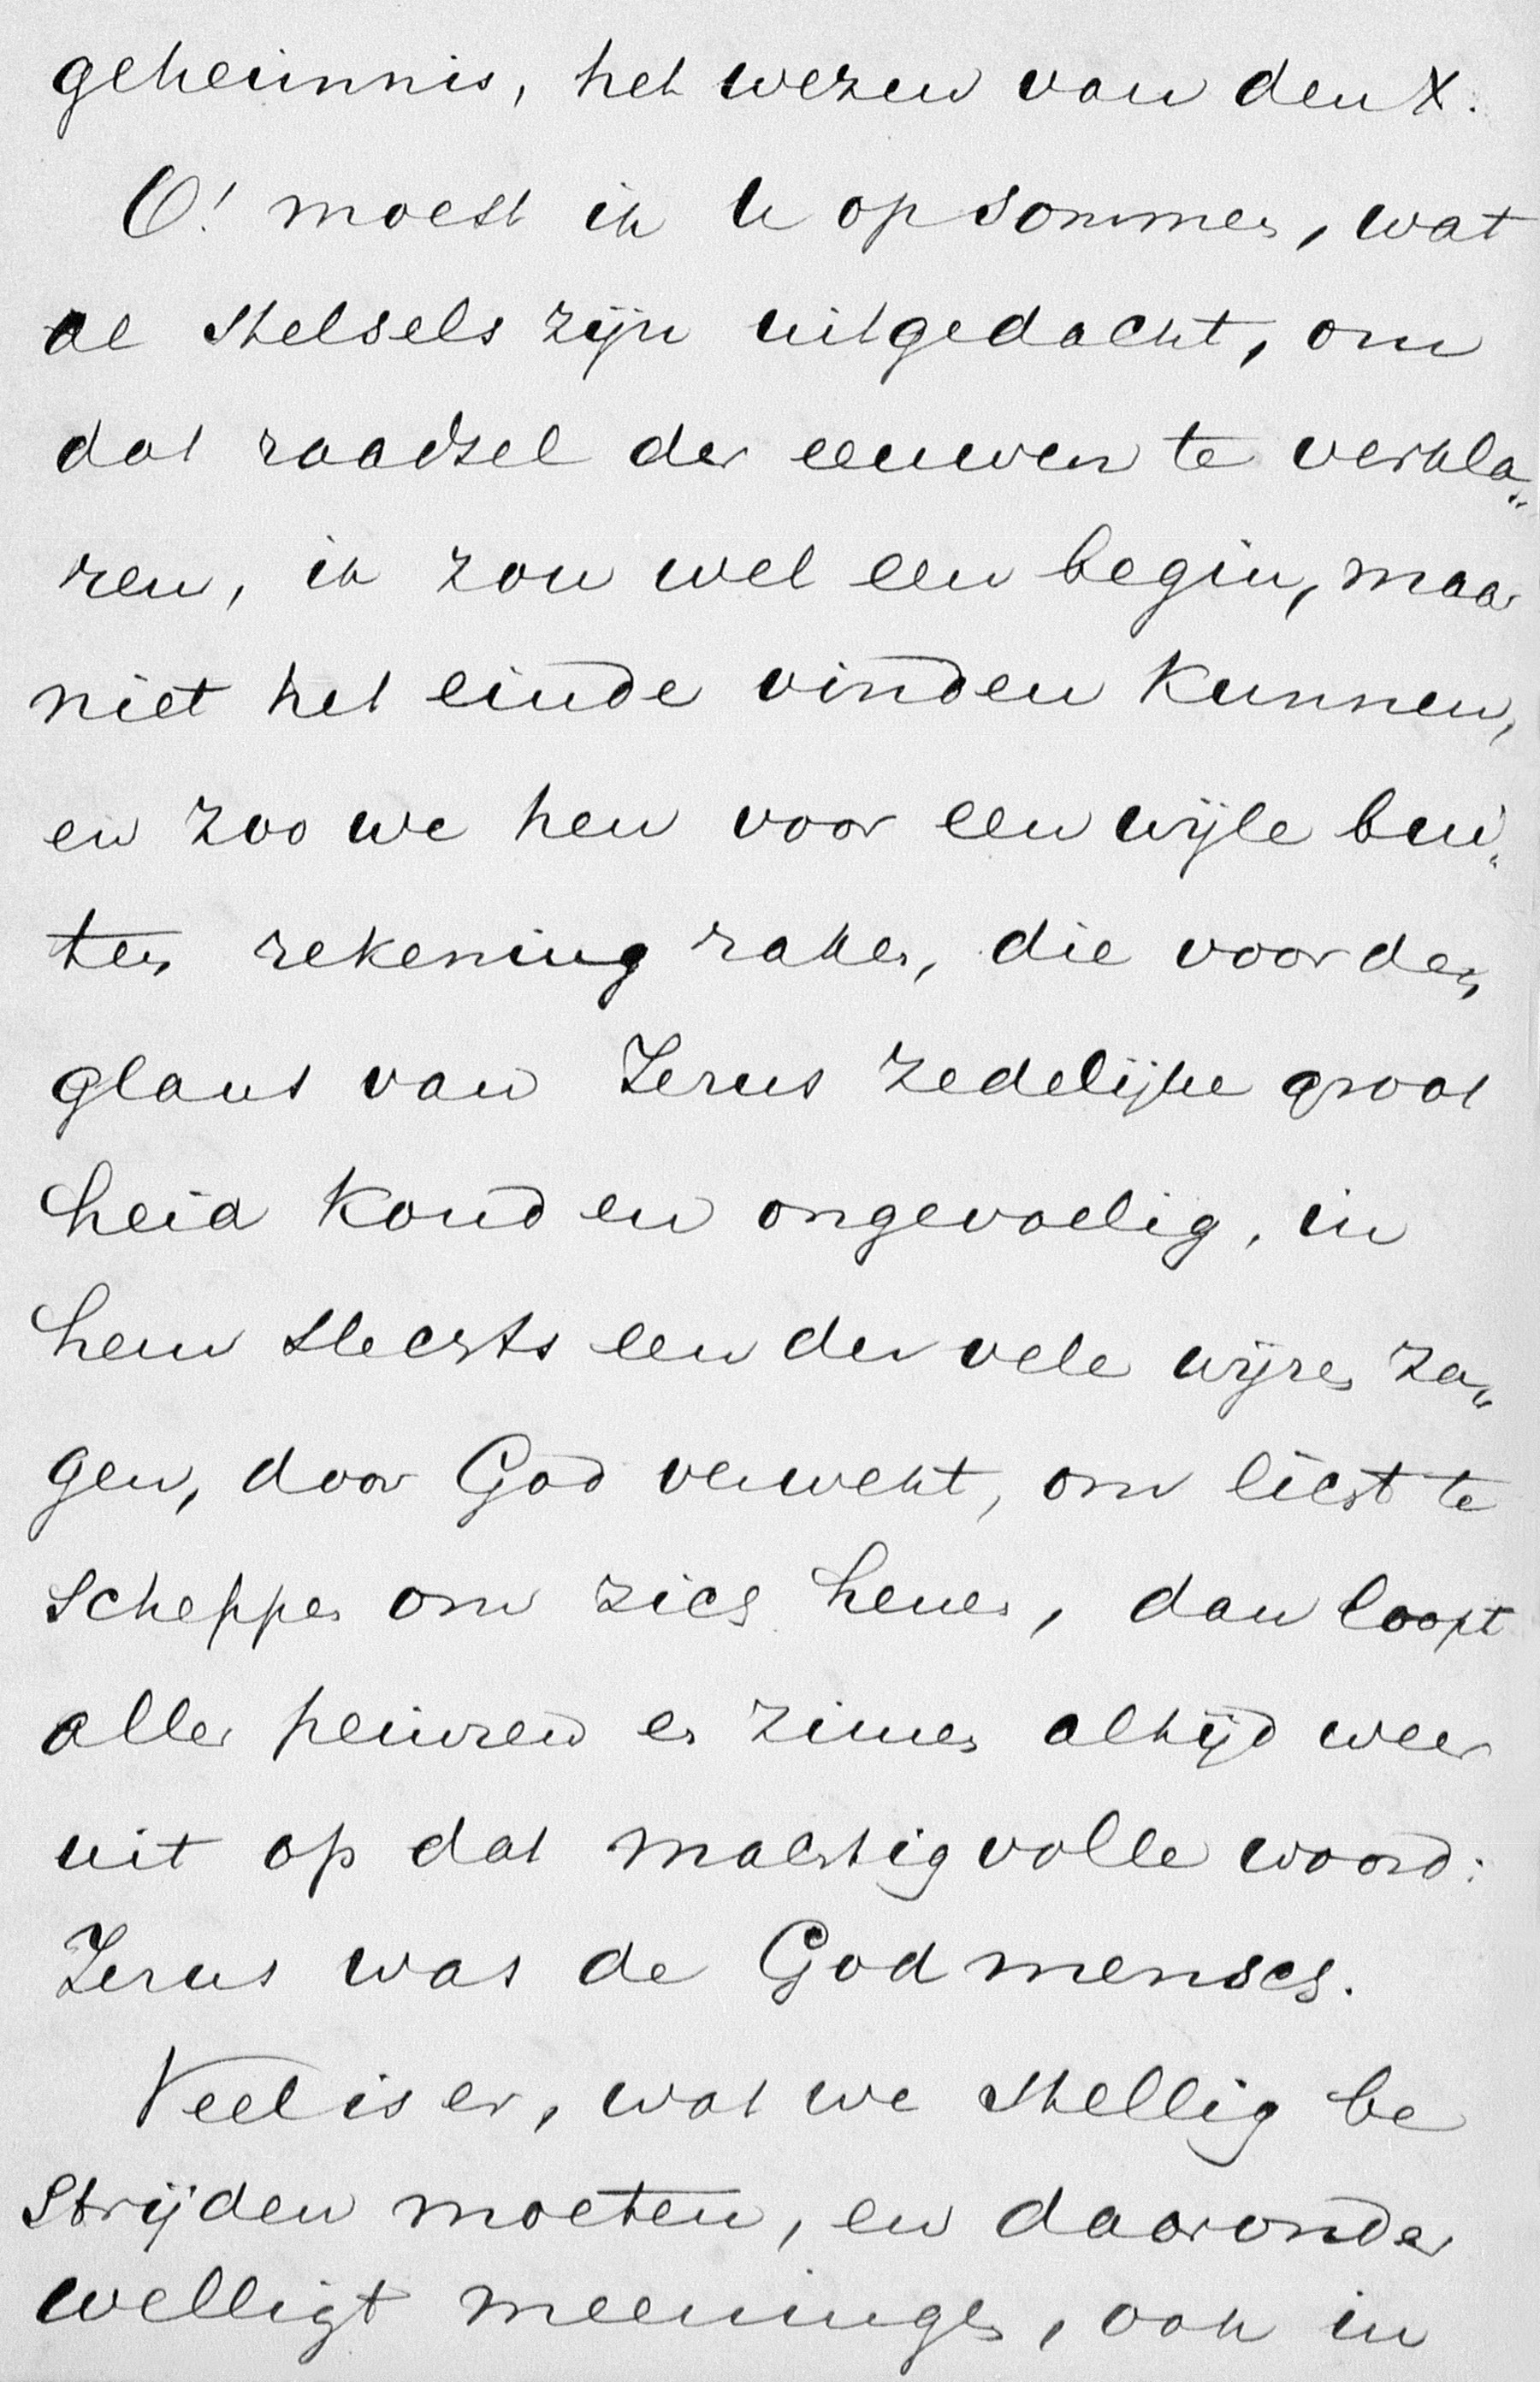 geheimnis, het wezen van den X.
O! moest ik U opsommen, wat
al stelsels zijn uitgedacht, om
dat raadsel der eeuwen te verkla„
ren, ik zou wel een begin, maar
niet het einde vinden kunnen,
en zoo we hen voor een wijle bui„
ten rekening laten, die voor den
glans van Jezus zedelijke groot
heid koud en ongevoelig, in
hem slechts een der vele wijzen za„
gen, door God verwekt, om licht te
scheppen om zich henen, dan loopt
aller peinzen en zinnen altijd weer
uit op dat machtig volle woord:
Jezus was de God mensch.
Veel is er, wat we stellig be
strijden moeten, en daaronder
welligt meeningen, ook in